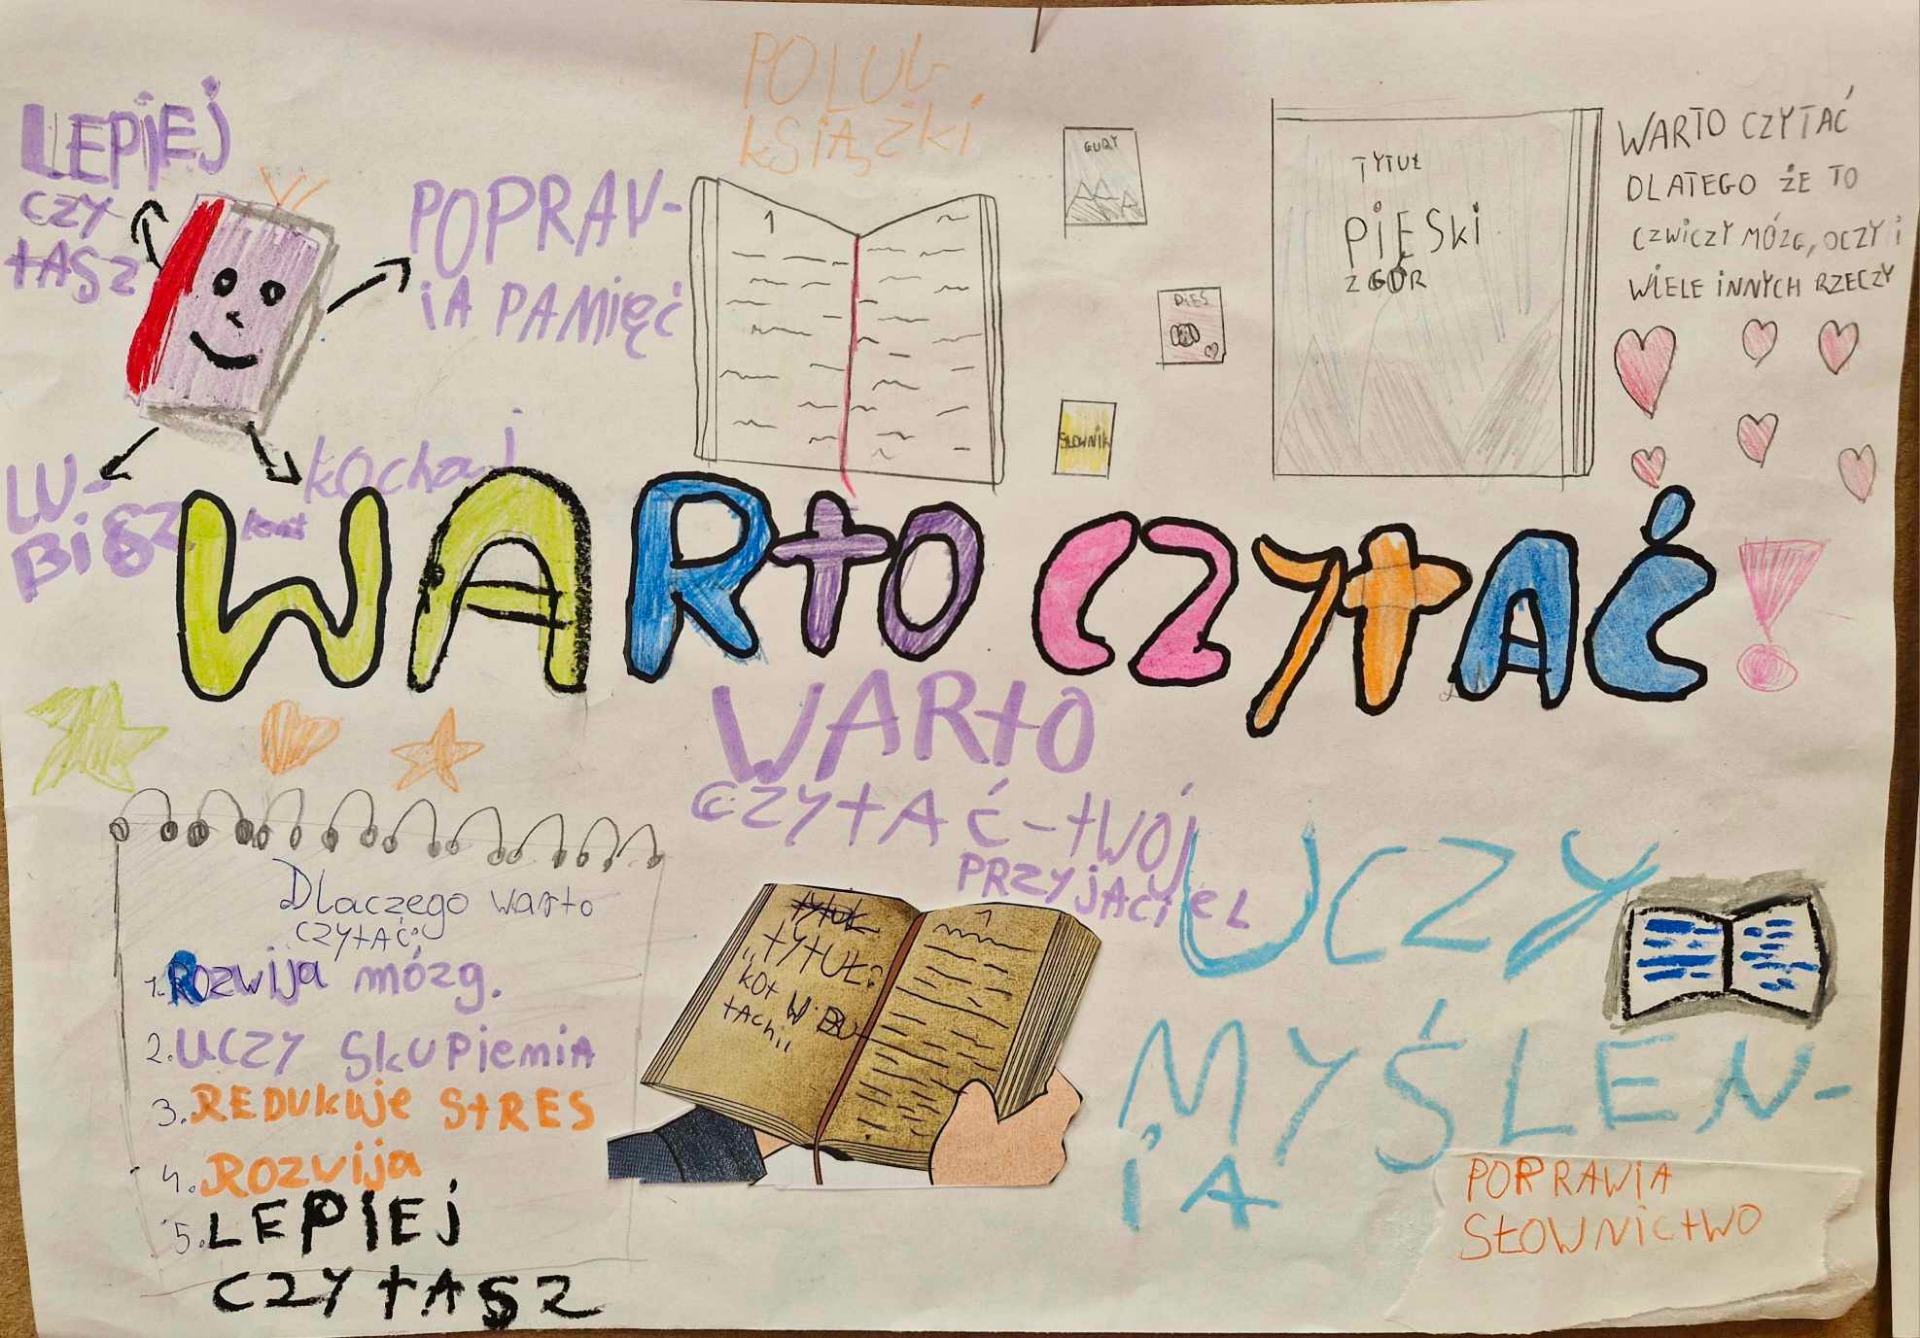 LEPIEJ
CZY
tASZ
POPRAW-
iA PAMięć
LU-
BiSZ
kochaj
POLUB
kSiĄŻki
1
GURY
PiES
SŁOWNik
TYTUŁ
PiESki
Z GÓR
WARTO CZYTAĆ
DLATEGO ŻE TO
CZWICZY MÓZG, OCZY i
WIELE iNNYCH RZECZY
WARtO CZYtAĆ!
WARtO
CZYtAĆ-tWój
PRZYjACiEL
Dlaczego warto
CZYTAĆ?
1. Rozwija mózg.
2. UCZY SkUPiemiA
3. REDUkuje StRES
4. Rozwija
5. LEPIEJ
CZYtASZ
tytuł:
"kot W BU
tach"
1
UCZY
MYŚLEN-
iA
POPRAWIA
SŁOWNictWO